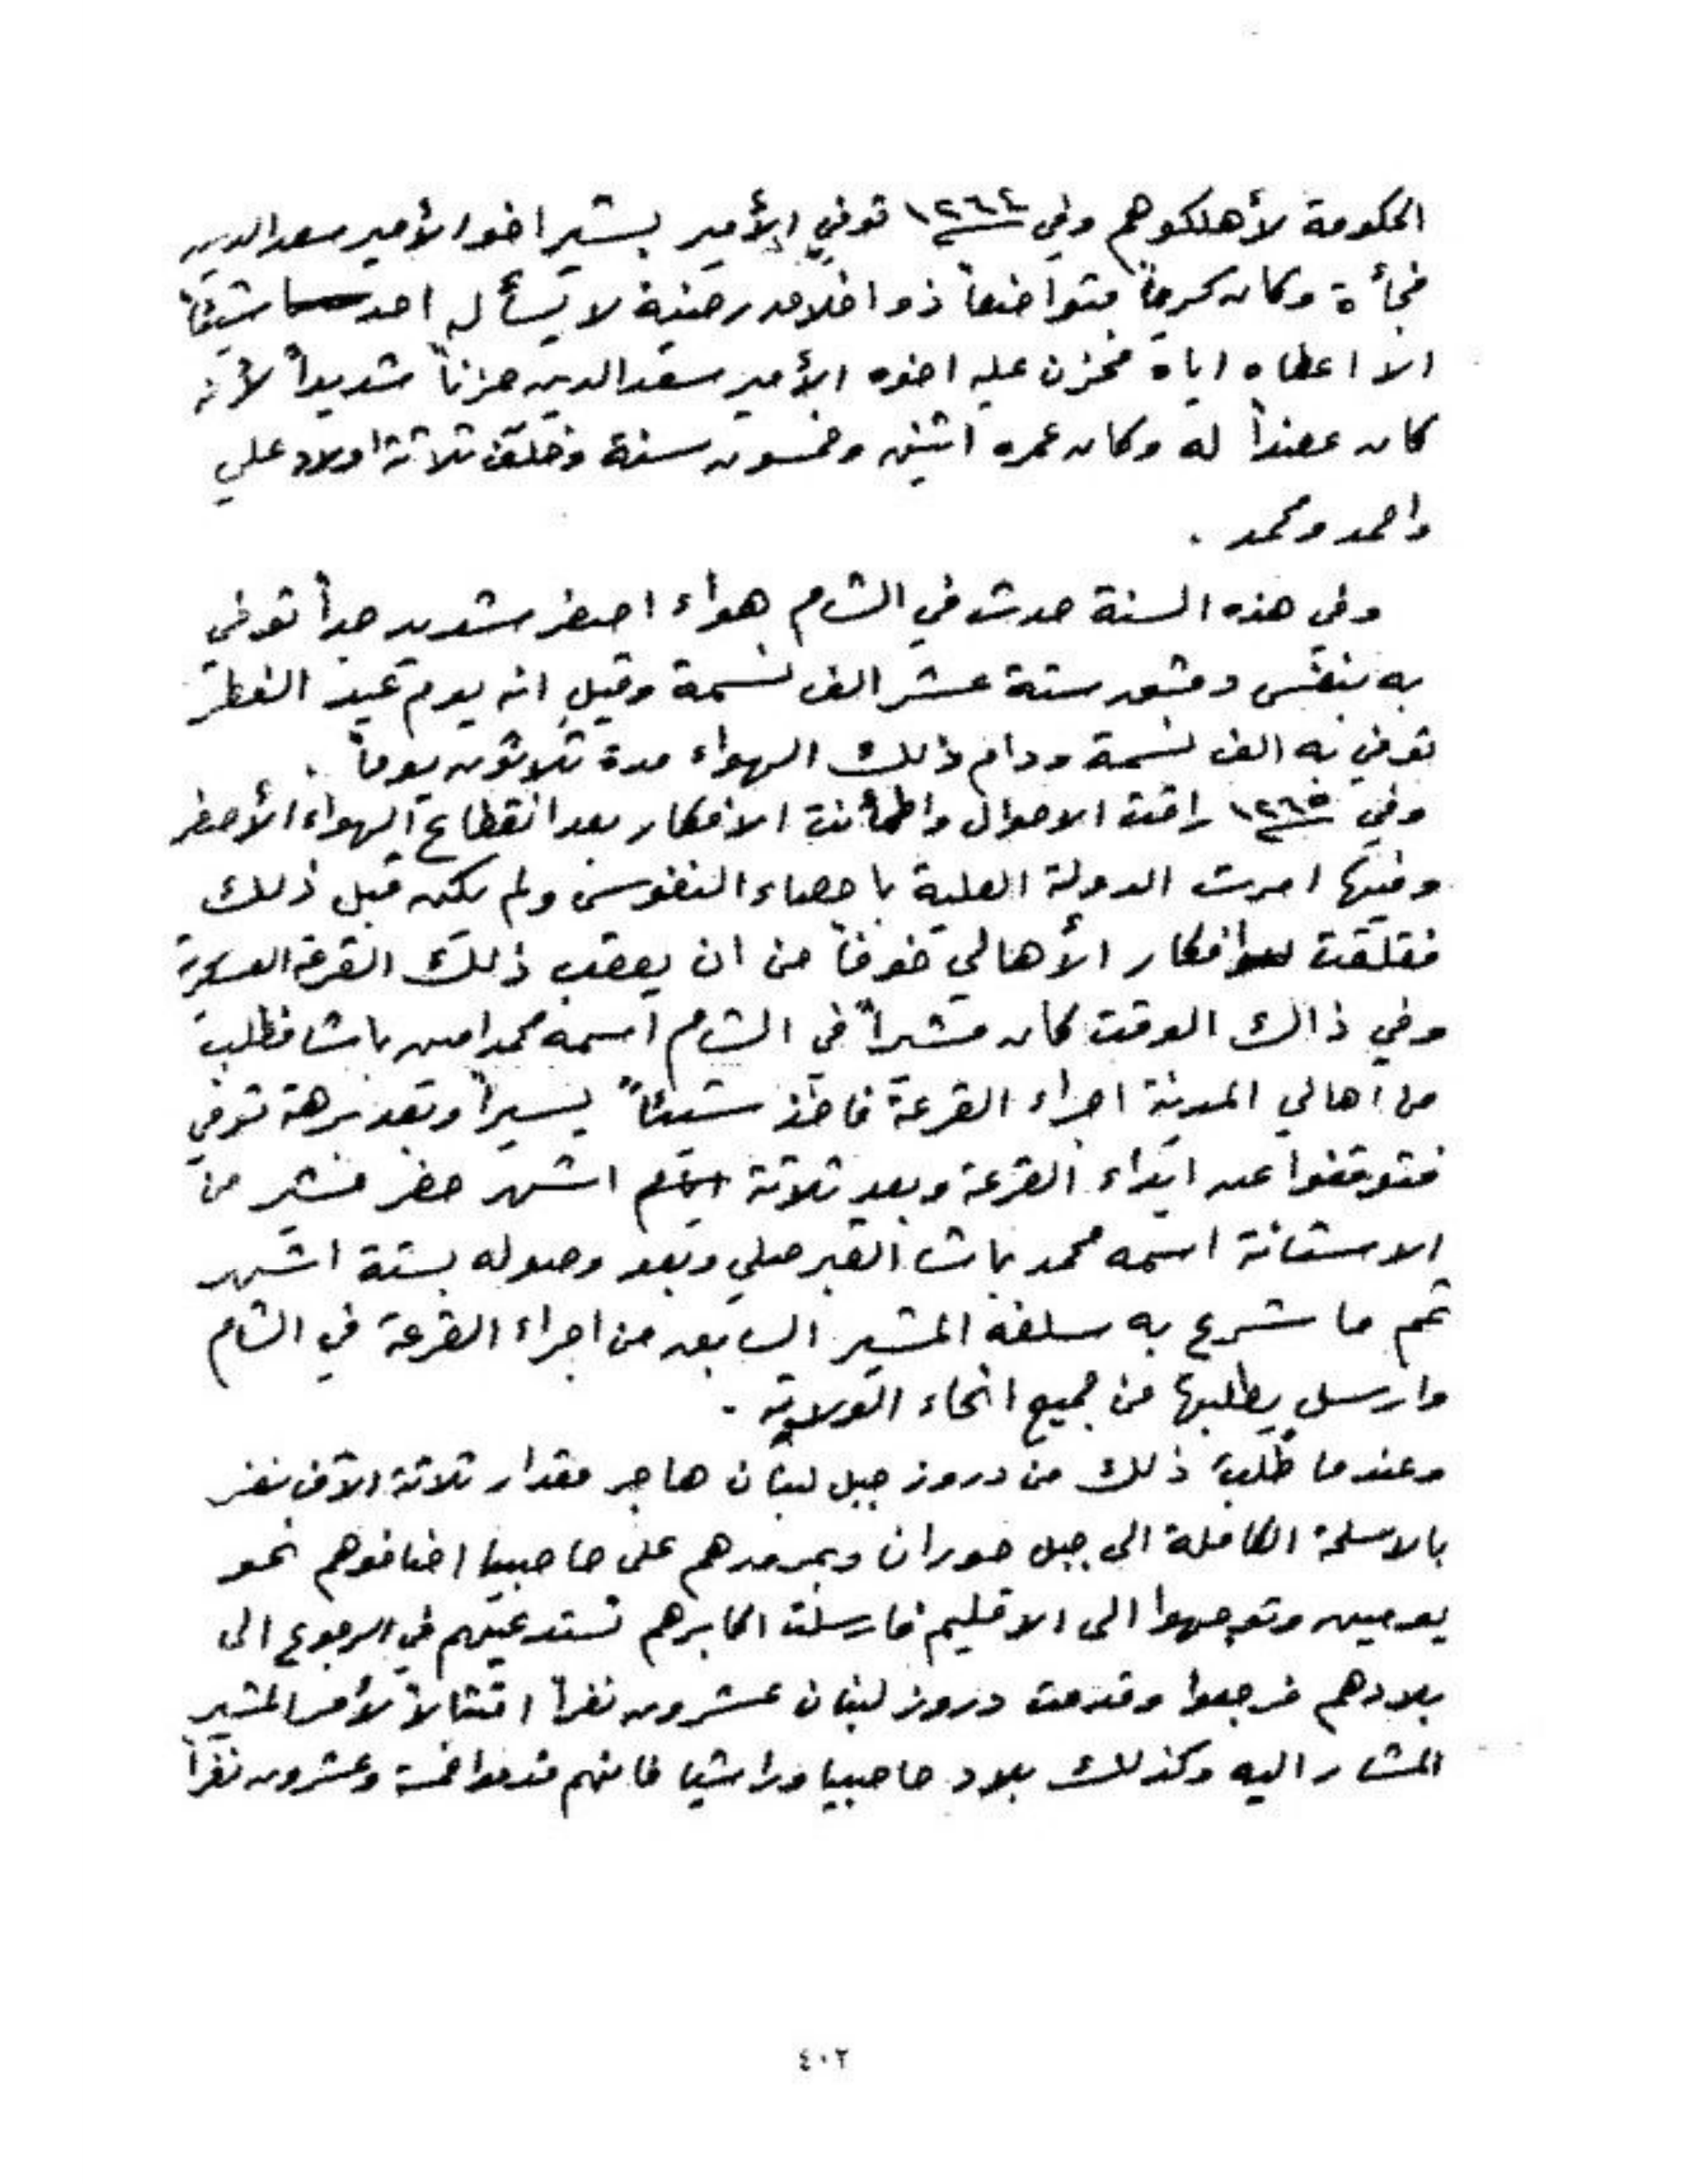 الحكومة لأهلكوهم وفي ١٢٦٤ توفي الأمير بشير اخو الأمير سعد الدين
فجأة وكان كريماً متواضعاً ذو اخلاق رضية لا يسأله احد شيئاً
الا اعطاه اياه فحزن عليه اخوه الأمير سعد الدين حزناً شديداً لأنه
كان عضداً له وكان عمره اثنين وخمسون سنة وخلّف ثلاثة اولاد علي
واحمد ومحمد .
وفي هذه السنة حدث في الشام هواء اصفر شديد جداً توفي
به بنفس دمشق ستة عشر الف نسمة وقيل انه يوم عيد الفطر
توفي به الف نسمة ودام ذلك الهواء مدة ثلاثون يوماً .
وفي ١٢٦٥ راقت الاحوال واطمأنت الافكار بعد انقطاع الهواء الأصفر
وفيها امرت الدولة العلية باحصاء النفوس ولم يكن قبل ذلك
فقلقت افكار الأهالي خوفاً من ان يعقب ذلك القرعة العسكرية
وفي ذاك الوقت كان مشيراً في الشام اسمه محمد امين باشا فطلب
من اهالي المدينة اجراء القرعة فاخذ شيئاً يسيراً وبعد برهة توفي
فتوقفوا عن ابداء القرعة وبعد ثلاثة ايام اشهر حضر مشير من
الاستانة اسمه محمد باشا القبرصلي وبعد وصوله بستة اشهر
تمم ما شرع به سلفه المشير السابق من اجراء القرعة في الشام
وارسل يطلبها من جميع انحاء الولاية .
وعندما طلب ذلك من دروز جبل لبنان هاجر مقدار ثلاثة الآف نفر
بالاسلحة الكاملة الى جبل حوران وبمرورهم على حاصبيا اضافوهم نحو
يومين وتوجهوا الى الاقليم فارسلت اكابرهم تستدعيهم في الرجوع الى
بلادهم فرجعوا وقدمت دروز لبنان عشرون نفراً امتثالاً لأمر المشير
المشار اليه وكذلك بلاد حاصبيا وراشيا فانهم قدموا خمسة وعشرون نفراً
٤٠٢